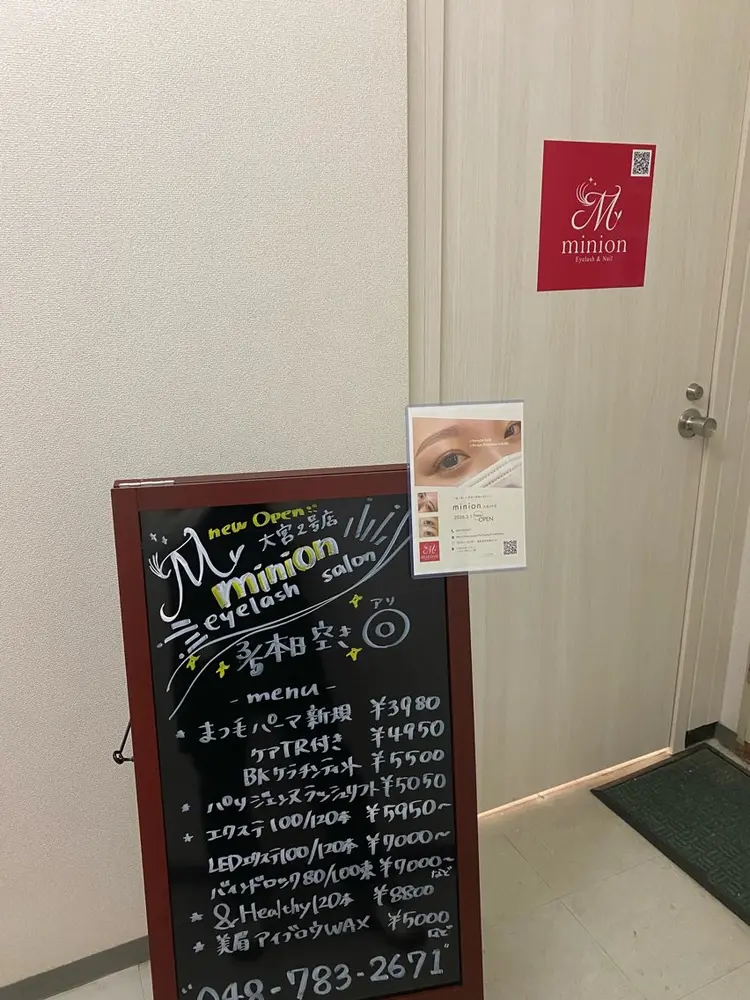 M
minion
Eyelash & Nail
new Open
大宮2号店
M
minion
eyelash salon
3/5本日空き アリ ◎
- menu -
* まつ毛パーマ新規 ¥3980
ケアTR付き ¥4950
BKケラチンティント ¥5500
* パリジェンヌラッシュリフト ¥5050
* エクステ100/120本 ¥5950~
LEDエクステ100/120本 ¥7000~
バインドロック80/100束 ¥7000~など
* &Healthy120本 ¥8800
* 美眉アイブロウWAX ¥5000など
048-783-2671
minion
OPEN
M